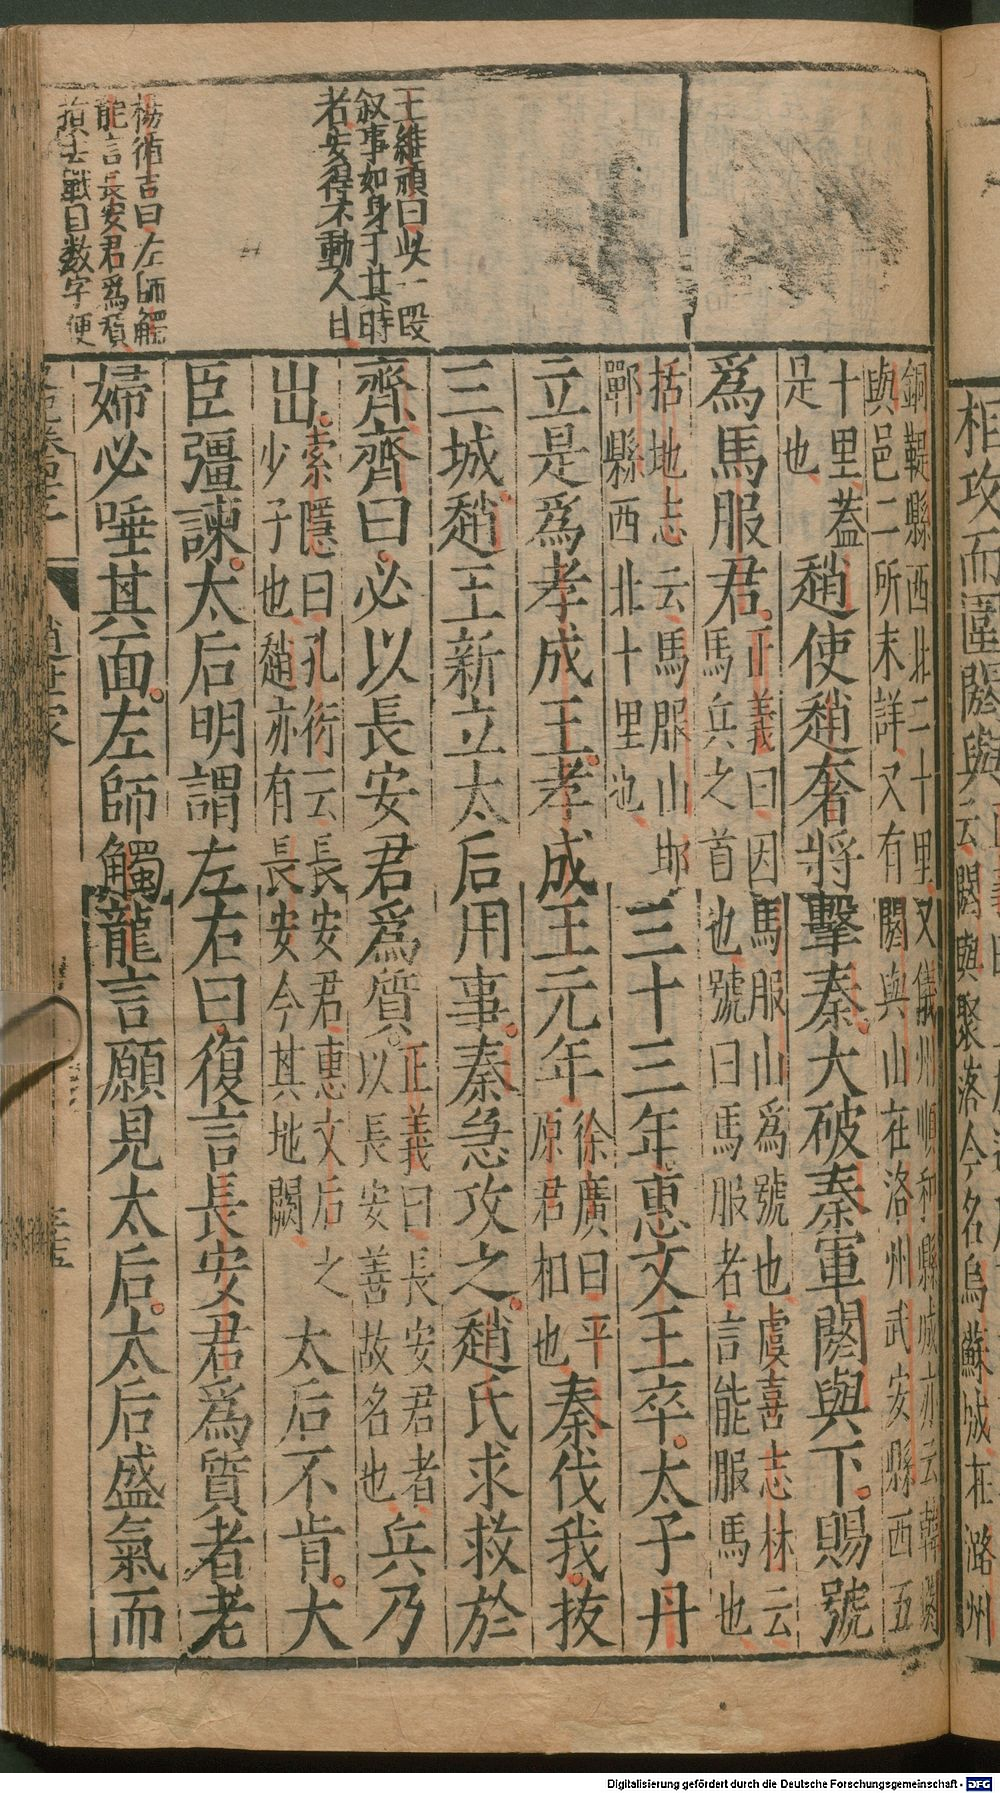 相攻而圍閼與云閼與聚落今名烏蘇城在潞州
王維頑曰此一段
叙事如身于其時
者安得不動人目
楊循吉曰左師觸
龍言長安君爲質
損去戰目数字便
銅鞮縣西北二十里又儀州順和縣城亦云韓閼
與邑二所未詳又有閼與山在洛州武安縣西五
十里蓋
是也
趙使趙奢將擊秦。大破秦軍閼與下。賜號
爲馬服君。
正義曰因馬服山爲號也虞喜志林云
馬兵之首也號曰馬服者言能服馬也
括地志云馬服山邯
鄲縣西北十里也
三十三年惠文王卒。太子丹
立是爲孝成王。孝成王元年
徐廣曰平
原君相也
秦伐我。拔
三城趙王新立太后用事。秦急攻之。趙氏求救於
齊齊曰。必以長安君爲質。
正義曰長安君者
以長安善故名也
兵乃
出。
索隱曰孔衍云長安君惠文后之
少子也趙亦有長安今其地闕
太后不肯。大
臣彊諫。太后明謂左右曰。復言長安君爲質者老
婦必唾其面。左師觸龍言願見太后。太后盛氣而
趙世家
三十五
Digitalisierung gefördert durch die Deutsche Forschungsgemeinschaft - DFG